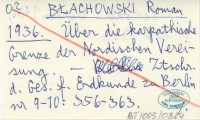 02 BŁACHOWSKI Roman
1936. Über die karpathische
Grenze der Nordischen Verei-
sung. - Ztschr.
d. Ges. f. Erdkunde zu Berlin
nr 9-10: 356-363.